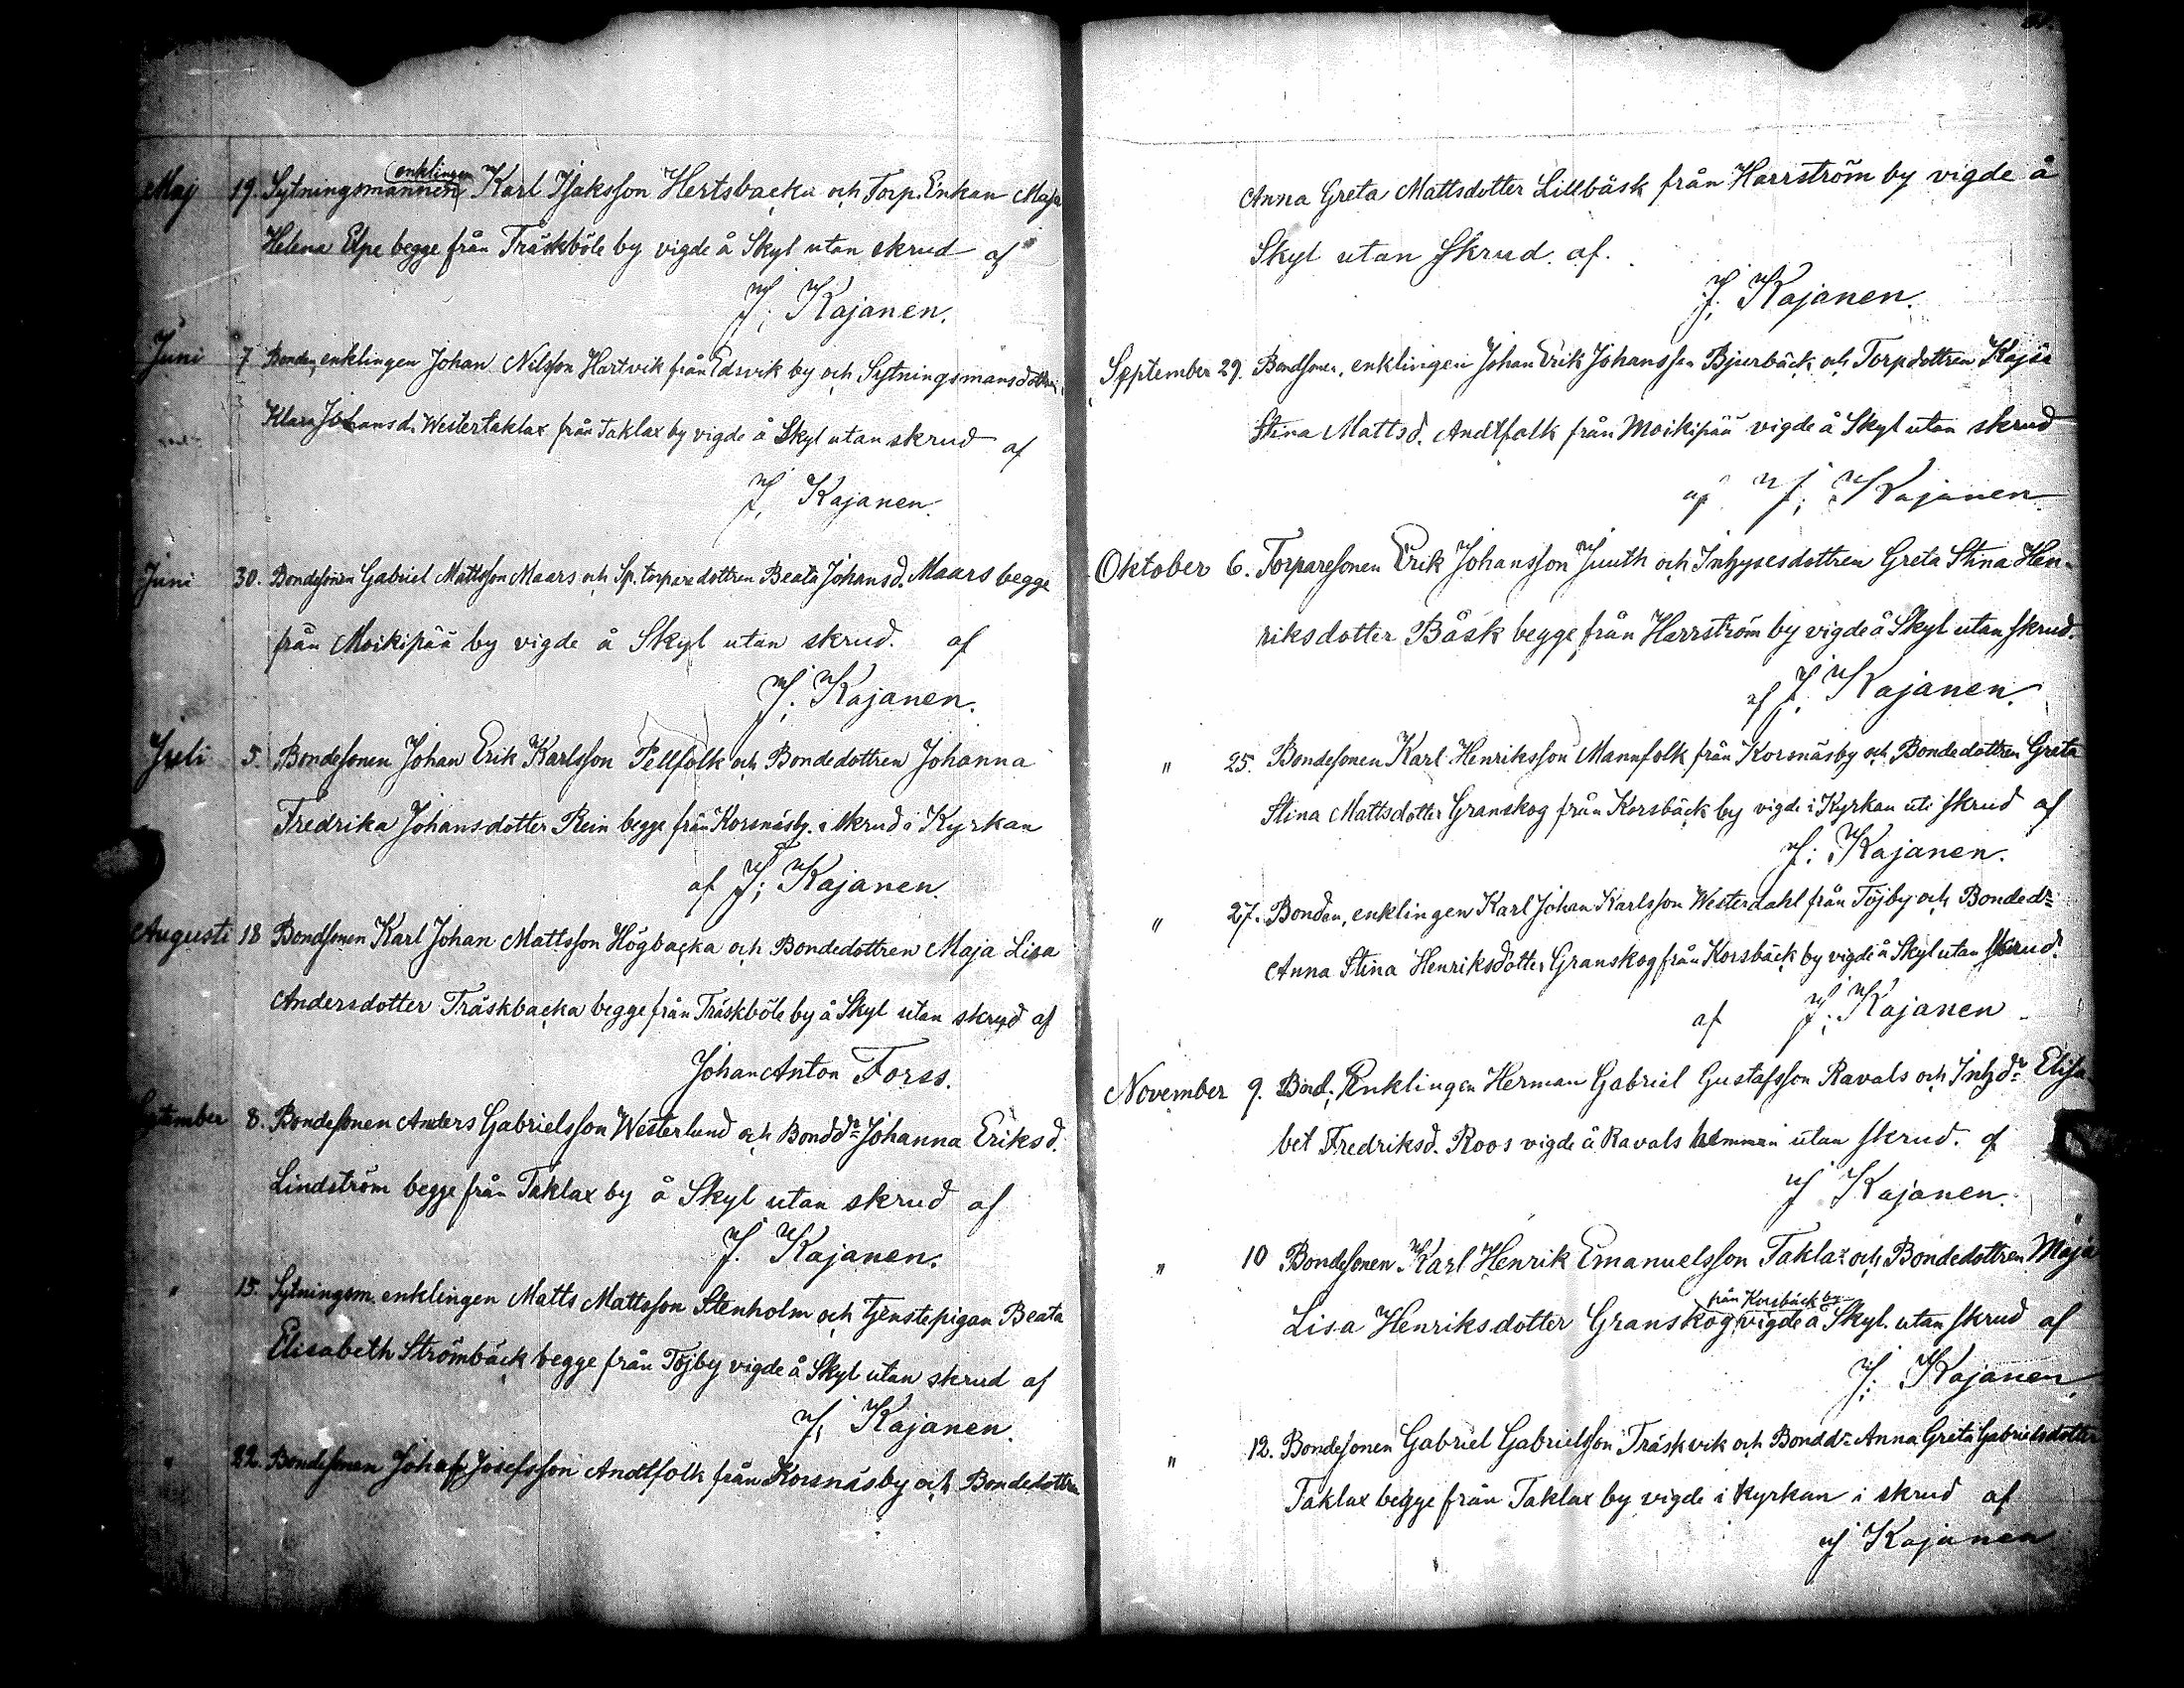 Maj 19. Sytningsmannen enklingen Karl Isaksson Hertsbacka och Torp.Enkan Maja
Helena Elpe begge från Träskböle by vigde å Skyl utan skrud af
J. Kajanen.
Juni 7 Bonden, enklingen Johan Nilsson Hartvik från Edsvik by och Sytningsmansdottren
Klara Johansd. Westertaklax från Taklax by vigde å Skyl utan skrud af
J. Kajanen.
Juni 30. Bondesonen Gabriel Mattsson Maars och Sp. torparedottren Beata Johansd. Maars begge
från Moikipää by vigde å Skyl utan skrud. af
J. Kajanen.
Juli 5. Bondesonen Johan Erik Karlsson Pellfolk och Bondedottren Johanna
Fredrika Johansdotter Rein begge från Korsnäsby i skrud i Kyrkan
af J. Kajanen.
Augusti 18 Bondsonen Karl Johan Mattsson Högbacka och Bondedottren Maja Lisa
Andersdotter Träskbacka begge från Träskböle by å Skyl utan skrud af
Johan Anton Forss.
September 8. Bondesonen Anders Gabrielsson Westerlund och Bondd:r Johanna Eriksd.
Lindström begge från Taklax by å Skyl utan skrud af
J. Kajanen.
" 15. Sytningsm. enklingen Matts Mattsson Stenholm och tjenstepigan Beata
Elisabeth Strömbäck begge från Töjby vigde å Skyl utan skrud af
J. Kajanen.
" 22. Bondesonen Josefsson Andtfolk från Korsnäsby och Bondedottren
Anna Greta Mattsdotter Lillbåsk från Harrström by vigde å
Skyl utan skrud. af.
J. Kajanen.
September 29. Bondsonen, enklingen Johan Erik Johansson Bjurbäck och Torpdottren Kajsa
Stina Mattsd. Andtfolk från Moikipää vigde å Skyl utan skrud
af J. Kajanen
Oktober 6. Torparesonen Erik Johansson Juuth och Inhysesdottren Greta Stina Hen-
riksdotter Båsk begge från Harrström by vigde å Skyl utan skrud.
af J. Kajanen.
" 25. Bondesonen Karl Henriksson Mannfolk från Korsnäsby och Bondedottren Greta
Stina Mattsdotter Granskog från Korsbäck by vigde i Kyrkan uti skrud af
J. Kajanen.
" 27. Bonden, enklingen Karl Johan Karlsson Westerdahl från Töjby och Bonded:r
Anna Stina Henriksdotter Granskog från Korsbäck by vigde å Skyl utan skrud.
af J. Kajanen
November 9. Bond. Enklingen Herman Gabriel Gustafsson Ravals och Inhd:r Elisa
bet Fredriksd. Roos vigde å Ravals hemman utan skrud. af
J Kajanen.
" 10 Bondesonen Karl Henrik Emanuelsson Taklax och Bondedottren Maja
Lisa Henriksdotter Granskog från Korsbäck by vigde å Skyl. utan skrud af
J. Kajanen.
" 12. Bondesonen Gabriel Gabrielsson Träskvik och Bondd:r Anna Greta Gabrielsdotter
Taklax begge från Taklax by vigde i kyrkan i skrud af
J Kajanen